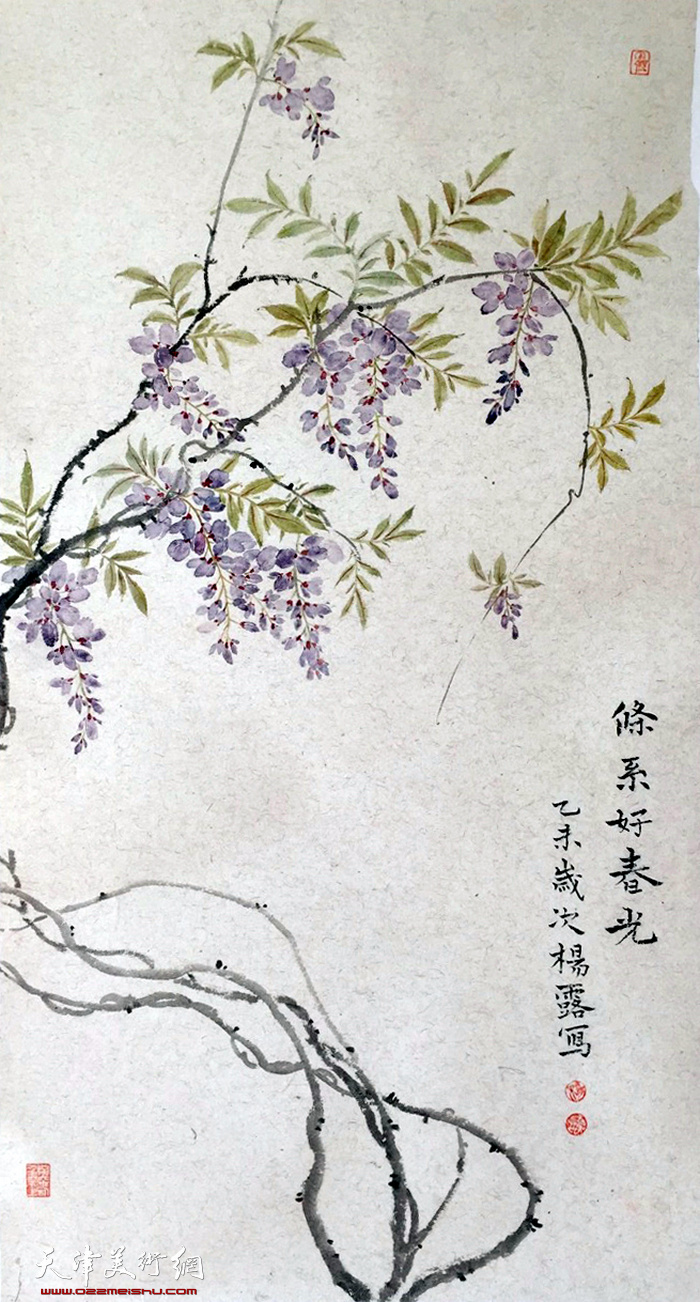 條系好春光
乙未歲次楊露寫
天津美術網
www.022meishu.com